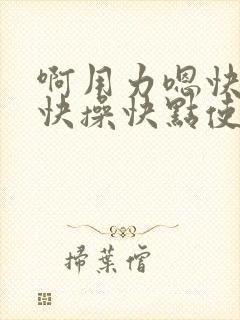 啊用力嗯快
快操快點使
掃葉僧